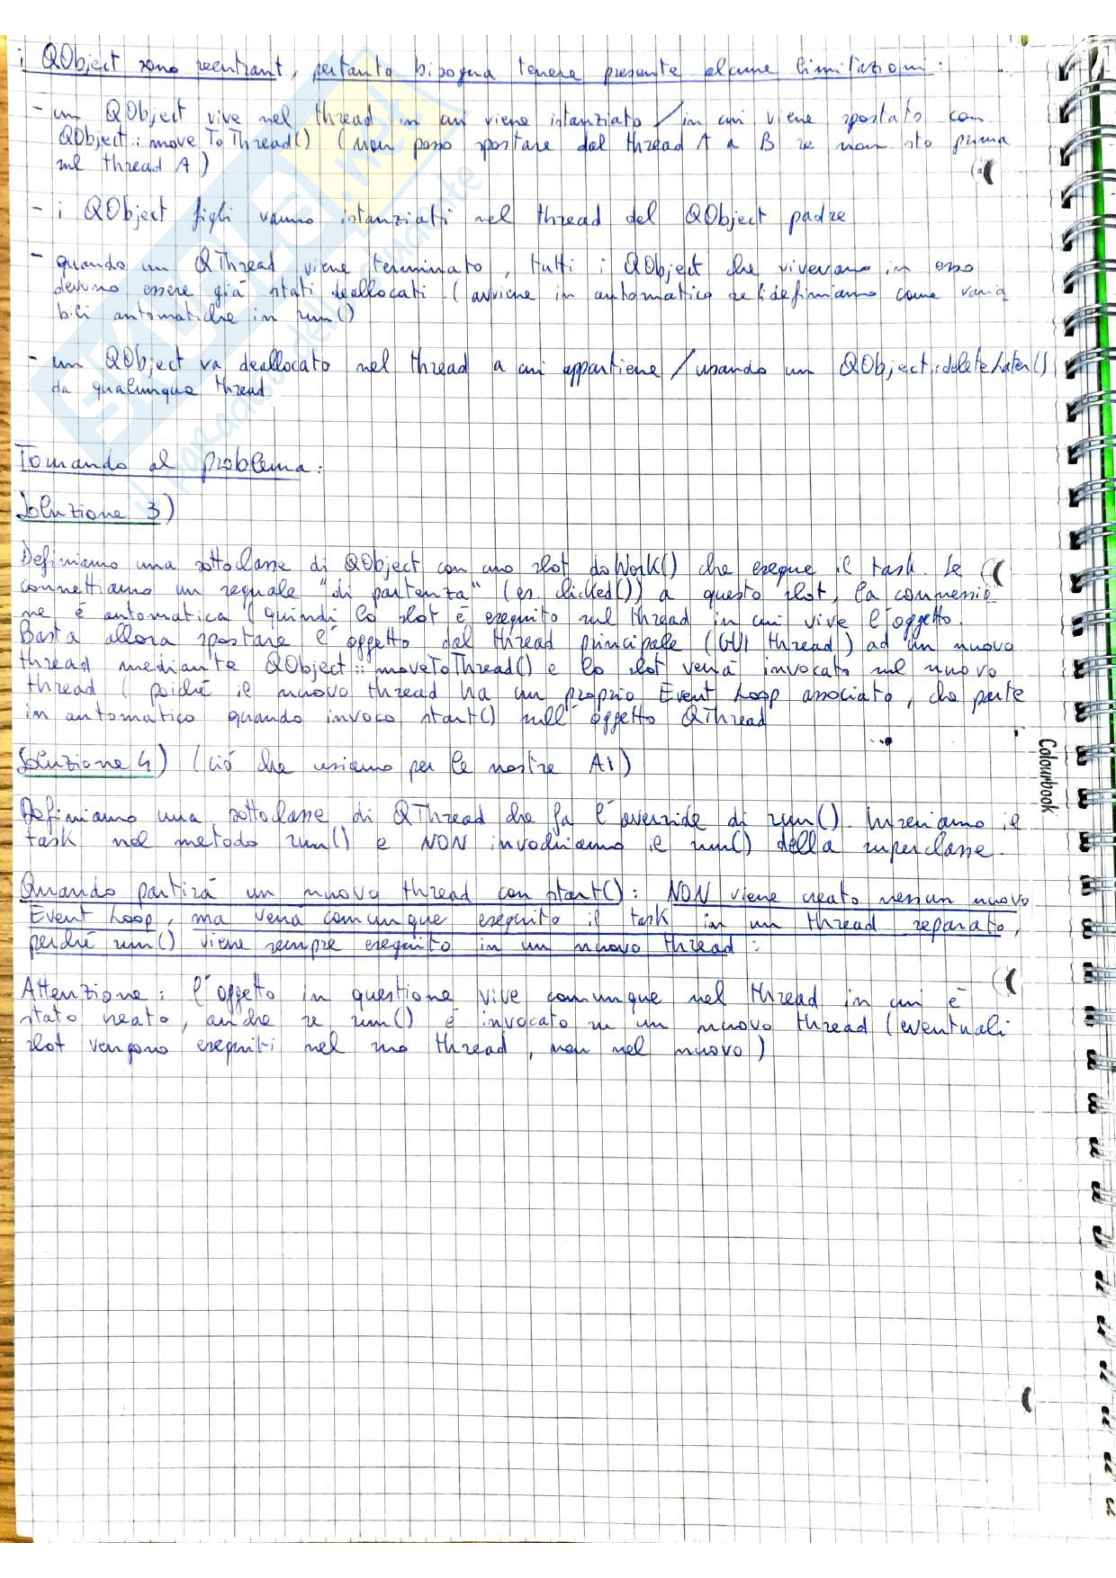 i QObject sono reentrant, pertanto bisogna tenere presente alcune limitazioni:
- un QObject vive nel thread in cui viene istanziato / in cui viene spostato con
QObject::moveToThread() (non posso spostare dal thread A a B se non sto prima
nel thread A)
- i QObject figli vanno istanziati nel thread del QObject padre
- quando un QThread viene terminato, tutti i QObject che vivevano in esso
devono essere già stati deallocati (avviene in automatico se li definiamo come varia
bili automatiche in run()
- un QObject va deallocato nel thread a cui appartiene / usando un QObject::deleteLater()
da qualunque thread
Tornando al problema:
Soluzione 3)
Definiamo una sottoclasse di QObject con uno slot doWork() che esegue il task. Se
connettiamo un segnale "di partenza" (es. clicked()) a questo slot, la connessio
ne è automatica (quindi lo slot è eseguito nel thread in cui vive l'oggetto.
Basta allora spostare l'oggetto dal thread principale (GUI thread) ad un nuovo
thread mediante QObject::moveToThread() e lo slot verrà invocato nel nuovo
thread (poiché il nuovo thread ha un proprio Event Loop associato, che parte
in automatico quando invoco start() sull'oggetto QThread
Soluzione 4) (ciò che usiamo per le nostre AI)
Definiamo una sottoclasse di QThread che fa l'override di run(). Inseriamo il
task nel metodo run() e NON invochiamo il run() della superclasse.
Quando partirà un nuovo thread con start(): NON viene creato nessun nuovo
Event Loop, ma verrà comunque eseguito il task in un thread separato,
perché run() viene sempre eseguito in un nuovo thread:
Attenzione: l'oggetto in questione vive comunque nel thread in cui è
stato creato, anche se run() è invocato su un nuovo thread (eventuali
slot vengono eseguiti nel suo thread, non nel nuovo)
Colourbook